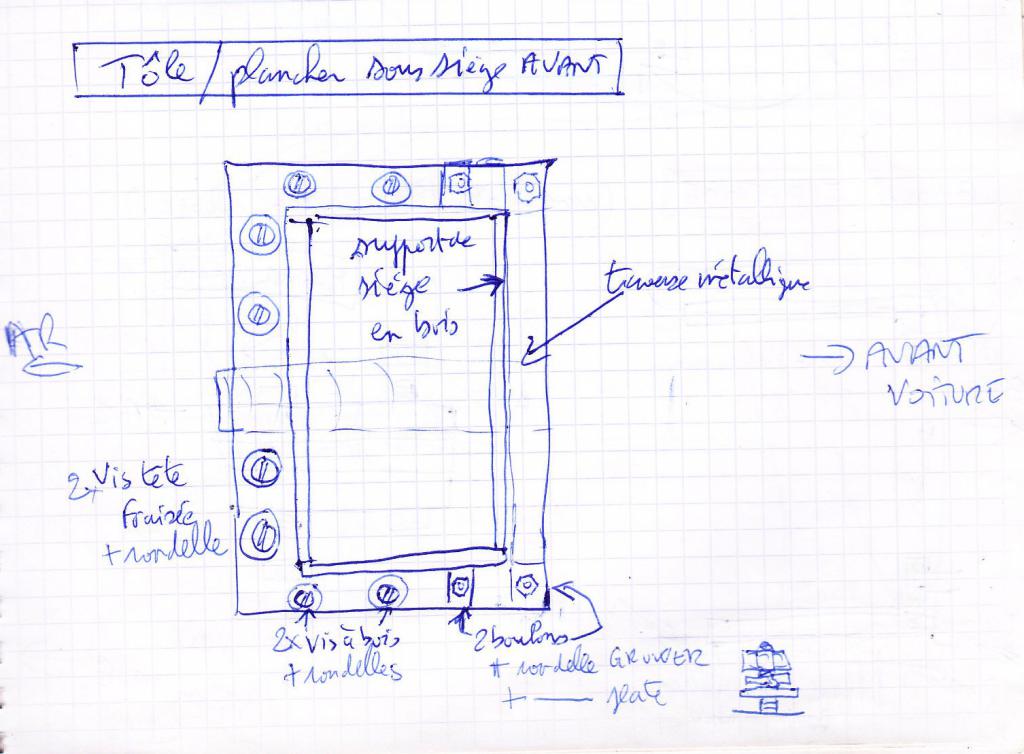 Tôle / plancher sous siège AVANT
support de
siège
en bois
traverse métallique
AR
→ AVANT
VOITURE
2x Vis tête
fraisée
+ rondelle
2x vis à bois
+ rondelles
2 boulons
+ rondelle GROWER
+ —— plate